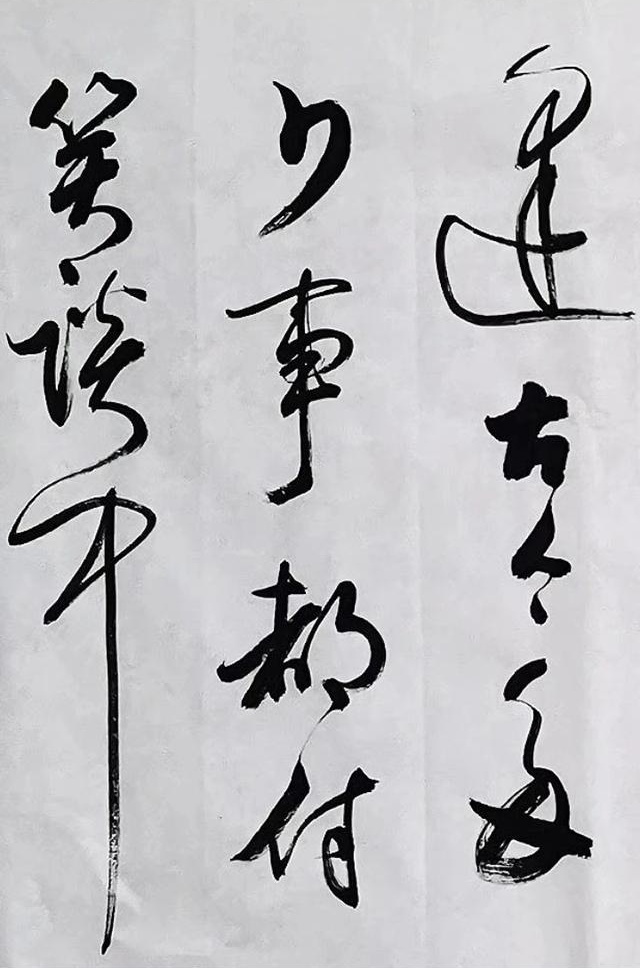 逢古今多
少事都付
笑谈中